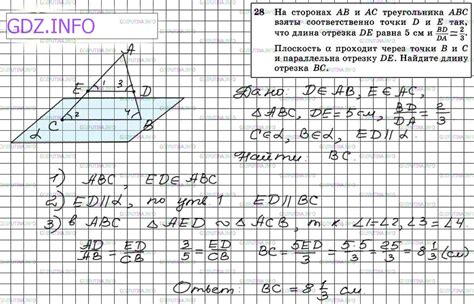 GDZ.INFO
28 На сторонах AB и AC треугольника ABC
взяты соответственно точки D и E так,
что длина отрезка DE равна 5 см и BD/DA = 2/3.
Плоскость α проходит через точки B и C
и параллельна отрезку DE. Найдите длину
отрезка BC.
A
E 1 3 D
C 2 4 B
α
Дано: D∈AB, E∈AC,
△ABC, DE=5см, BD/DA = 2/3
C∈α, B∈α, ED∥α
Найти: BC.
1) ABC, ED∈ABC
2) ED∥α, по утв 1 ED∥BC
3) в ABC △AED ∾ △ACB, т к ∠1=∠2, ∠3=∠4.
AD/AB = ED/CB 3/5 = ED/CB BC = 5ED/3 = 5·5/3 = 25/3 = 8 1/3 (см)
Ответ: BC = 8 1/3 см